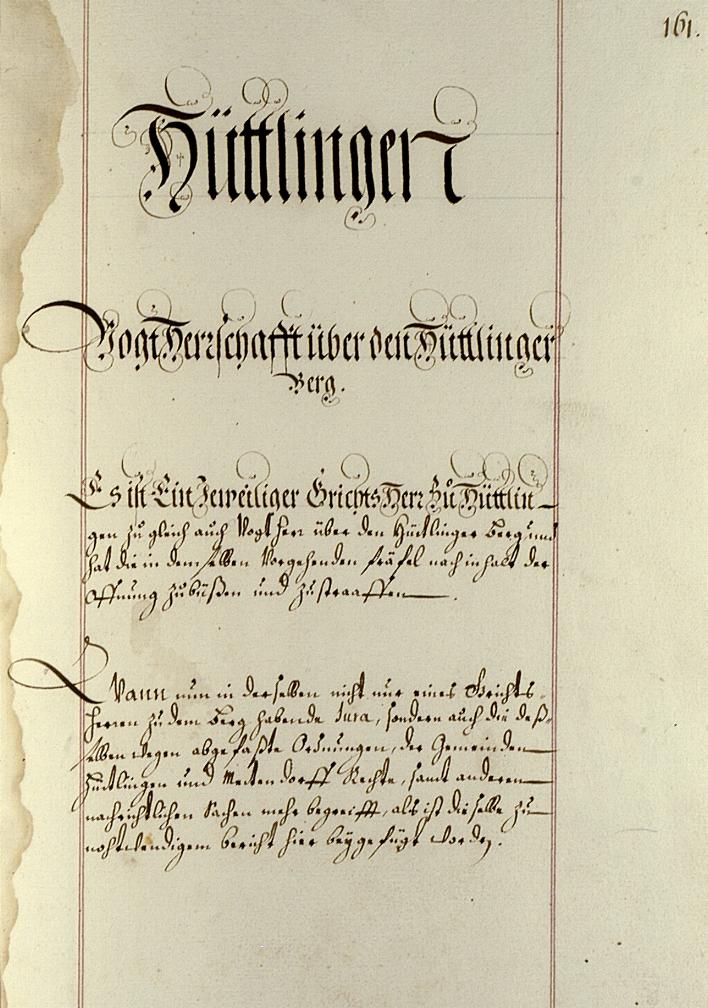 161.
Hüttlingen
Vogt Herrschafft über den Hüttlinger
Berg.
Es ist Ein Jeweiliger Grichts Herr Zu Hüttlin-
gen zu gleich auch Vogtherr über den Hüttlinger Berg und
hat die in demselben Vorgehenden fräfel nach inhalt der
Offnung zubüßen und zustraaffen.
Wann nun in derselben nicht nur eines Grichts-
herren zu dem Berg habende Jura, sondern auch die deß-
selben wegen abgefaßte Ordnungen, der Gemeinden
Hüttlingen und Mettendorff Rechte, samt anderen
nachrichtlichen Sachen mehr begreifft, als ist dieselbe zu
nohtwendigem bericht hier beygefügt worden.